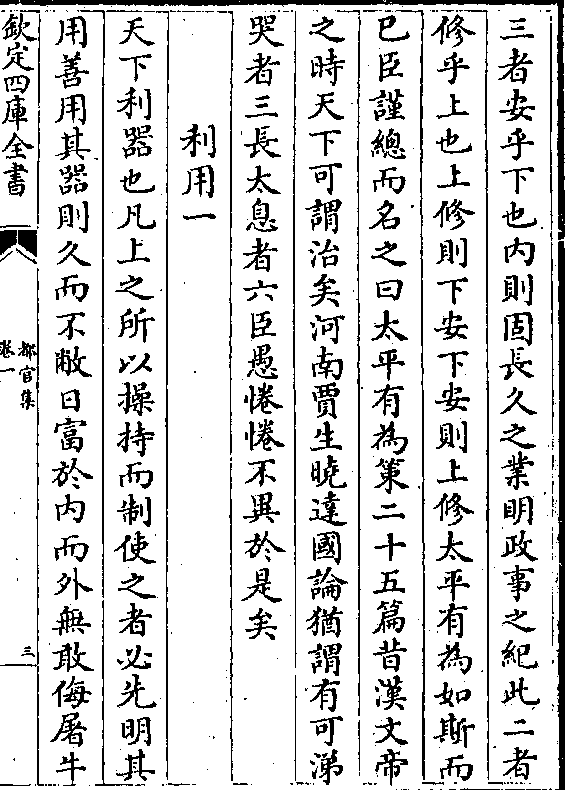 三者安乎下也内則固長久之業明政事之紀此二者
修乎上也上修則下安下安則上修太平有為如斯而
已臣謹總而名之曰太平有為策二十五篇昔漢文帝
之時天下可謂治矣河南賈生曉達國論猶謂有可涕
哭者三長太息者六臣愚惓惓不異於是矣
利用一
天下利器也凡上之所以操持而制使之者必先明其
用善用其器則久而不敝日富於内而外無敢侮屠牛
欽定四庫全書
都官集
卷一
三